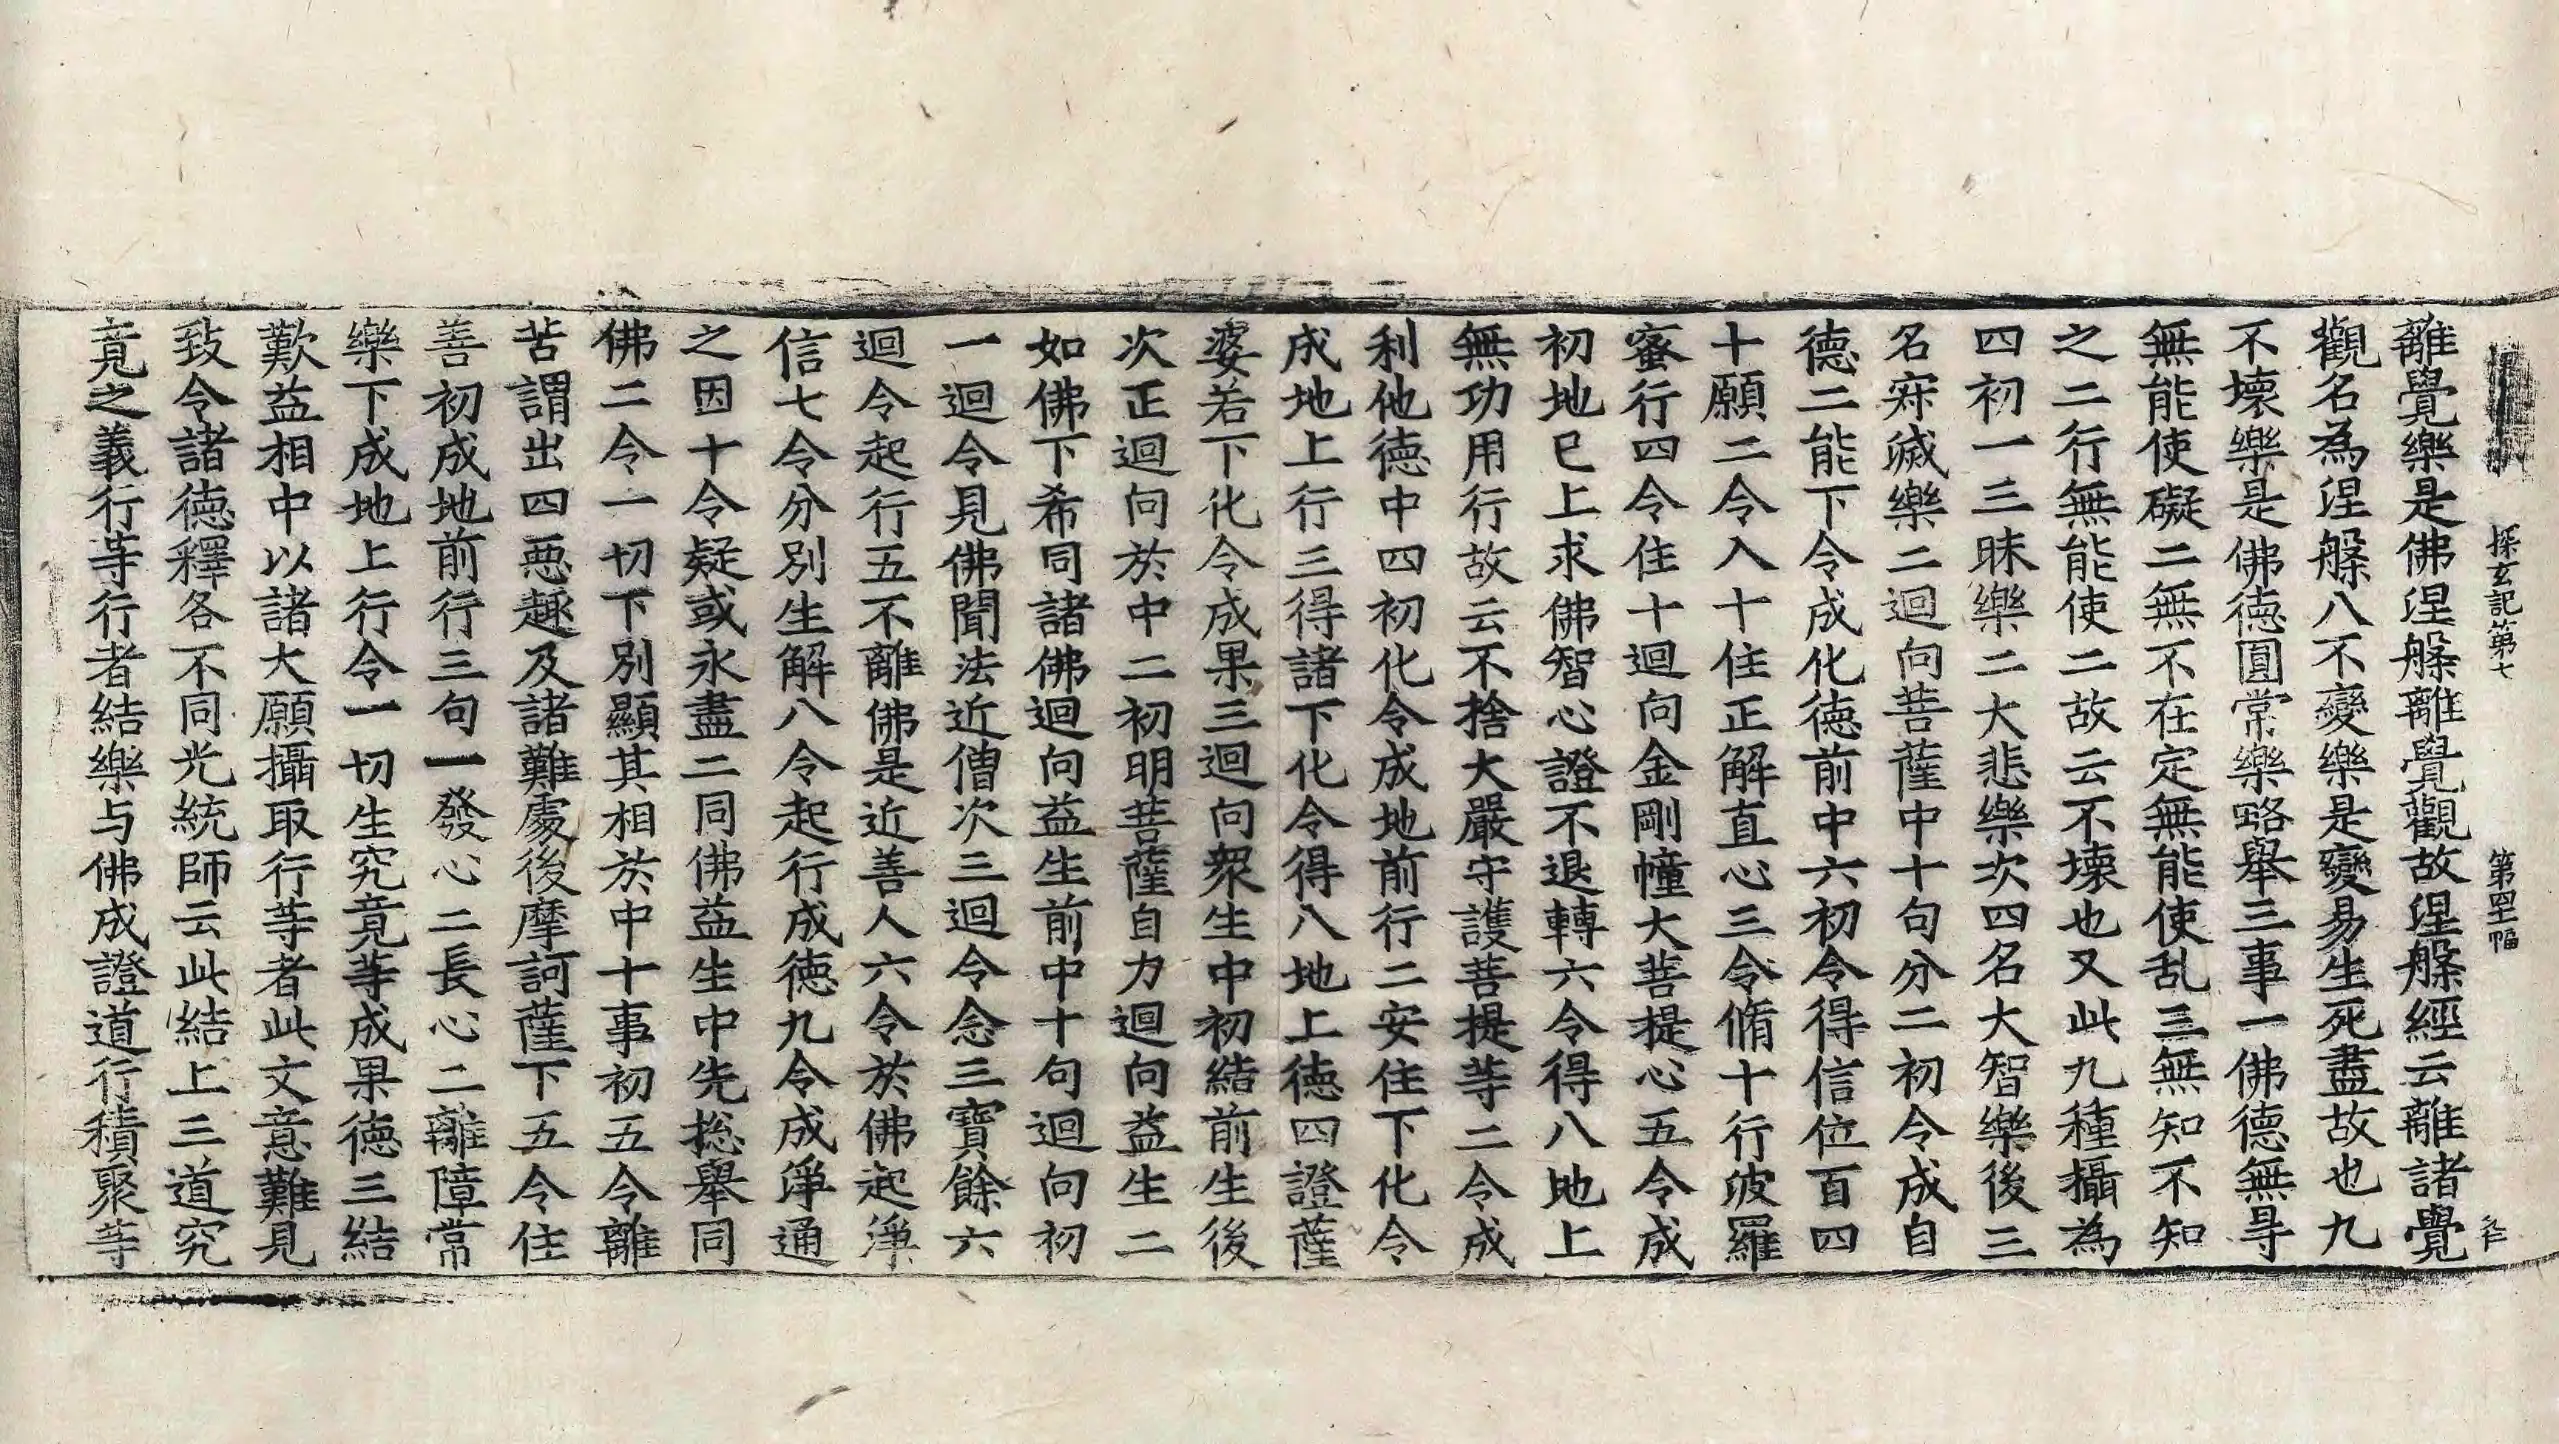 探玄記第七 第四十二幅
離覺樂是佛涅槃離覺觀故涅槃經云離諸覺
觀名為涅槃八不變樂是變易生死盡故也九
不壞樂是佛德圓常樂略舉三事一佛德無㝵
無能使礙二無不在定無能使乱三無知不知
之二行無能使二故云不壞也又此九種攝為
四初一三昧樂二大悲樂次四名大智樂後三
名㝠滅樂二迴向菩薩中十句分二初令成自
德二能下令成化德前中六初令得信位百四
十願二令入十住正解直心三令脩十行波羅
蜜行四令住十迴向金剛幢大菩提心五令成
初地已上求佛智心證不退轉六令得八地上
無功用行故云不捨大嚴守護菩提等二令成
利他德中四初化令成地前行二安住下化令
成地上行三得諸下化令得八地上德四證薩
婆若下化令成果三迴向衆生中初結前生後
次正迴向於中二初明菩薩自力迴向益生二
如佛下希同諸佛迴向益生前中十句迴向初
一迴令見佛聞法近僧次三迴令念三寶餘六
迴令起行五不離佛是近善人六令於佛起淨
信七令分別生解八令起行成德九令成淨通
之因十令疑或永盡二同佛益生中先揔舉同
佛二令一切下別顯其相於中十事初五令離
苦謂出四惡趣及諸難處後摩訶薩下五令住
善初成地前行三句一發心二長心二離障常
樂下成地上行令一切生究竟等成果德三結
歎益相中以諸大願攝取行等者此文意難見
致令諸德釋各不同光統師云此結上三道究
竟之義行等行者結樂与佛成證道行積聚等